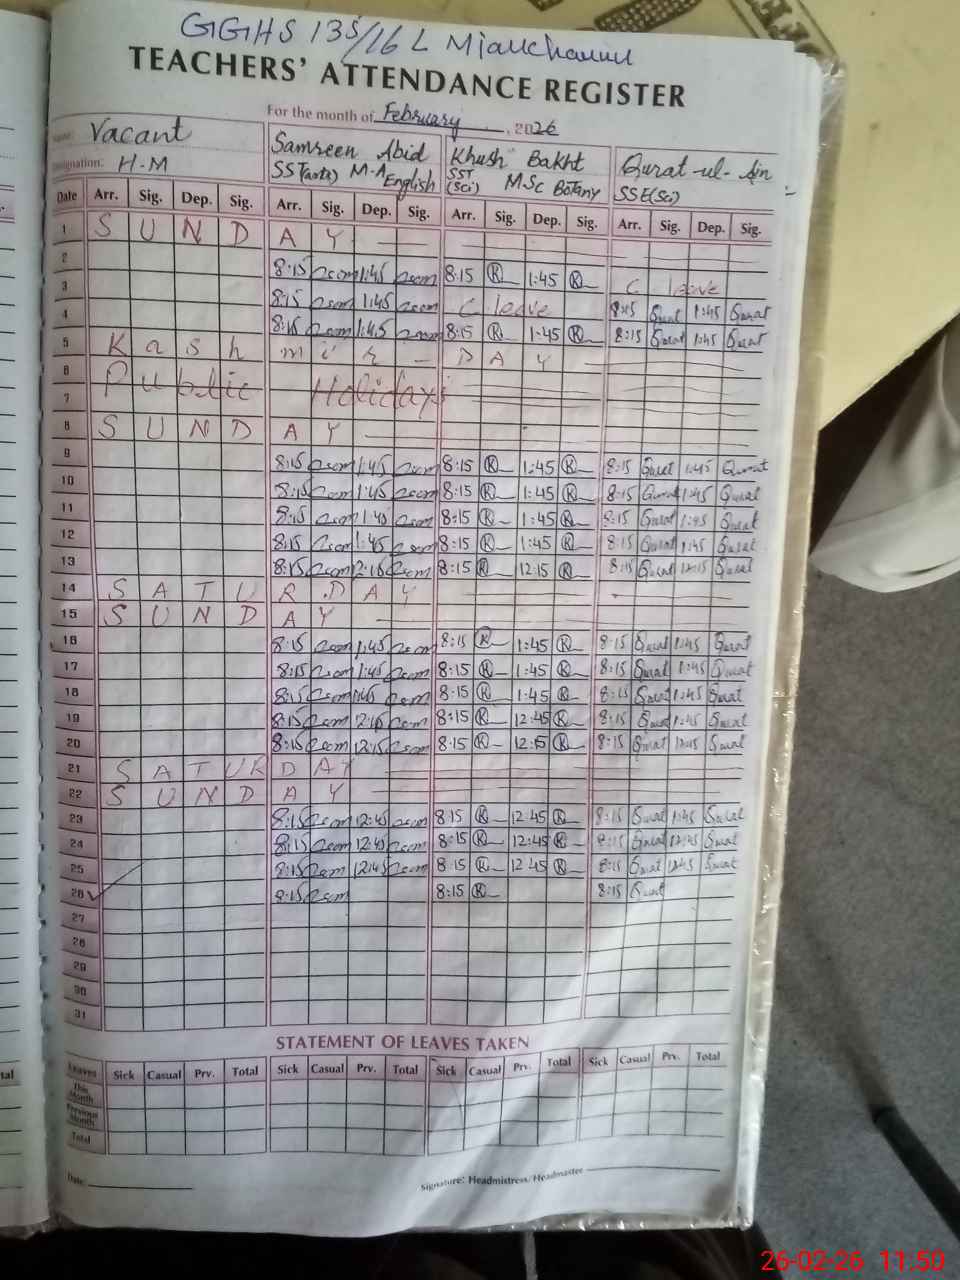 GGHS 135/16 L Mianchannu
TEACHERS' ATTENDANCE REGISTER
For the month of February, 2026
Name: Vacant
Designation: H.M
Samreen Abid
SST(arts) M.A English
Khush Bakht
SST (Sci) M.Sc Botany
Qurat-ul-Ain
SSE(Sci)
Date Arr. Sig. Dep. Sig. Arr. Sig. Dep. Sig. Arr. Sig. Dep. Sig. Arr. Sig. Dep. Sig.
1 S U N D A Y
2 8:15 1:45 8:15 K 1:45 K C leave
3 8:15 1:45 C leave 8:15 Qurat 1:45 Qurat
4 8:15 1:45 8:15 K 1:45 K 8:15 Qurat 1:45 Qurat
5 K a s h m i r D A Y
6 Public Holidays
7
8 S U N D A Y
9 8:15 1:45 8:15 K 1:45 K 8:15 Qurat 1:45 Qurat
10 8:15 1:45 8:15 K 1:45 K 8:15 Qurat 1:45 Qurat
11 8:15 1:45 8:15 K 1:45 K 8:15 Qurat 1:45 Qurat
12 8:15 1:45 8:15 K 1:45 K 8:15 Qurat 1:45 Qurat
13 8:15 12:15 8:15 K 12:15 K 8:15 Qurat 12:15 Qurat
14 S A T U R D A Y
15 S U N D A Y
16 8:15 1:45 8:15 K 1:45 K 8:15 Qurat 1:45 Qurat
17 8:15 1:45 8:15 K 1:45 K 8:15 Qurat 1:45 Qurat
18 8:15 1:45 8:15 K 1:45 K 8:15 Qurat 1:45 Qurat
19 8:15 8:15 K 12:45 K 8:15 Qurat Qurat
20 8:15 12:15 8:15 K 12:15 K 8:15 Qurat 12:15 Qurat
21 S A T U R D A Y
22 S U N D A Y
23 8:15 12:45 8:15 K 12:45 K 8:15 Qurat Qurat
24 8:15 12:45 8:15 K 12:45 K 8:15 Qurat 12:45 Qurat
25 8:15 12:45 8:15 K 12:45 K 8:15 Qurat 12:45 Qurat
26 8:15 8:15 K 8:15 Qurat
27
28
29
30
31
STATEMENT OF LEAVES TAKEN
Leaves Sick Casual Prv. Total Sick Casual Prv. Total Sick Casual Prv. Total Sick Casual Prv. Total
This Month
Previous Month
Total
Date:
Signature: Headmistress/Headmaster
26-02-26 11:50